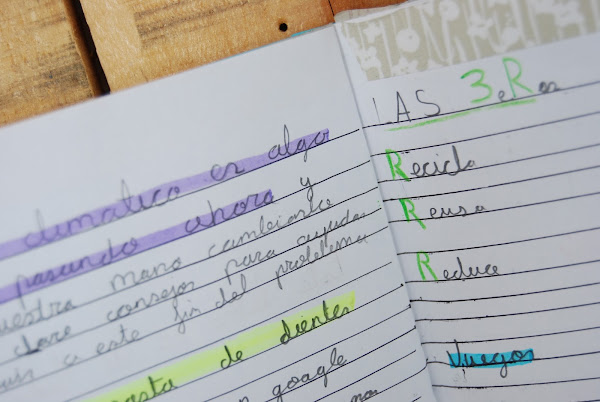 climatico es algo
pasando ahora y
uestra mano cambiarlo
clave consejos para ayudar
a este fin del problema
pasta de dientes
en google
LAS 3 eRes
Recicla
Reusa
Reduce
Juegos